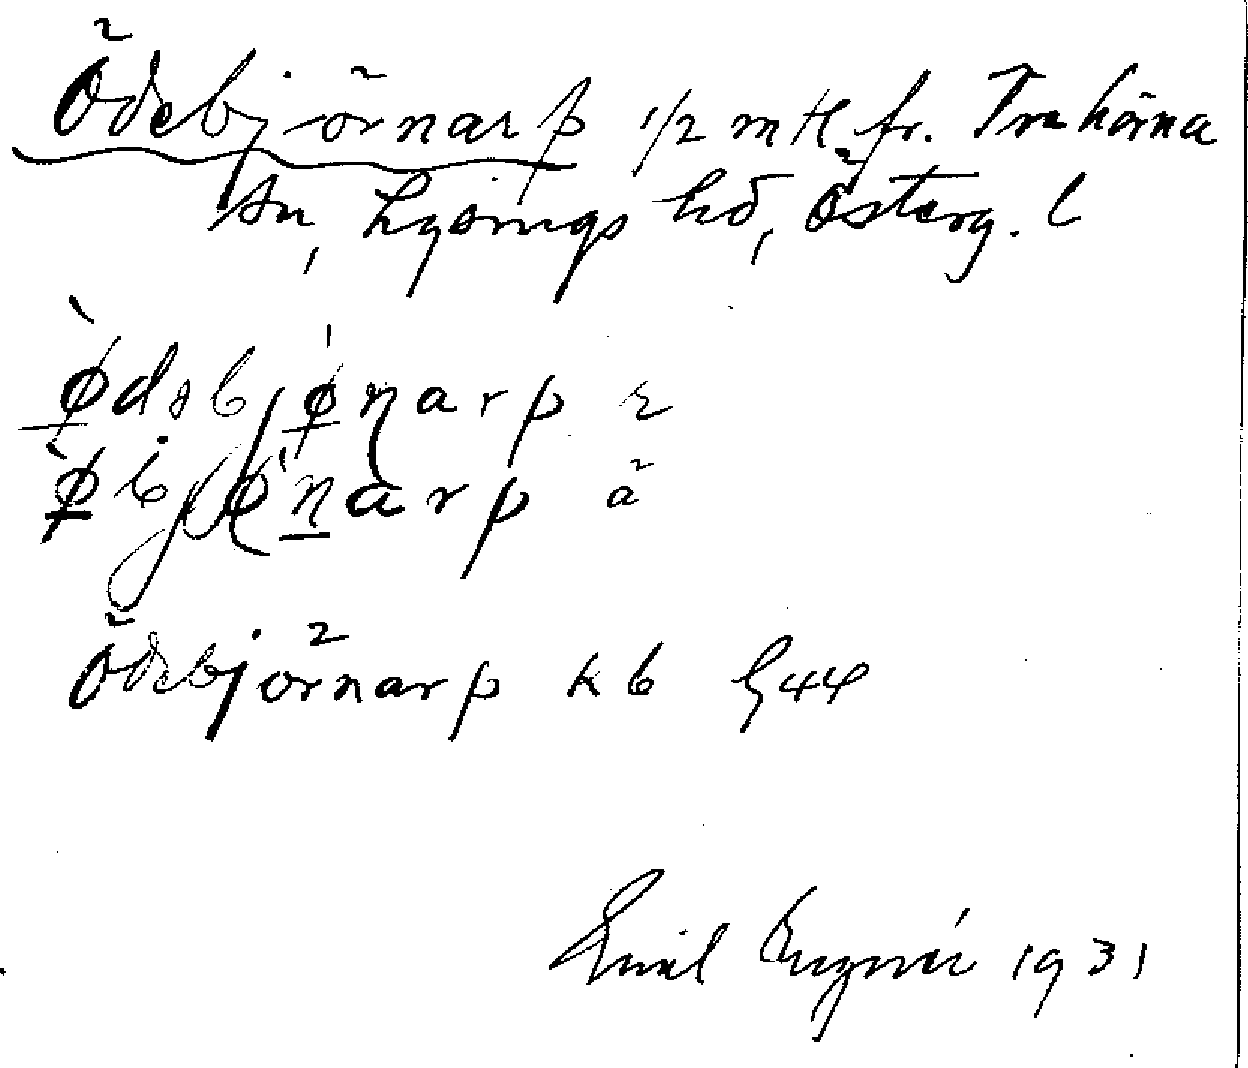 Ödebjörnarp 1/2 mtl fr. Trehörna
sn, Lysings hd, Österg. l
ø̀dəbjǿɳarp
ø̀bjǿɳarp å
Ödebjörnarp kb G44
Emil 1931